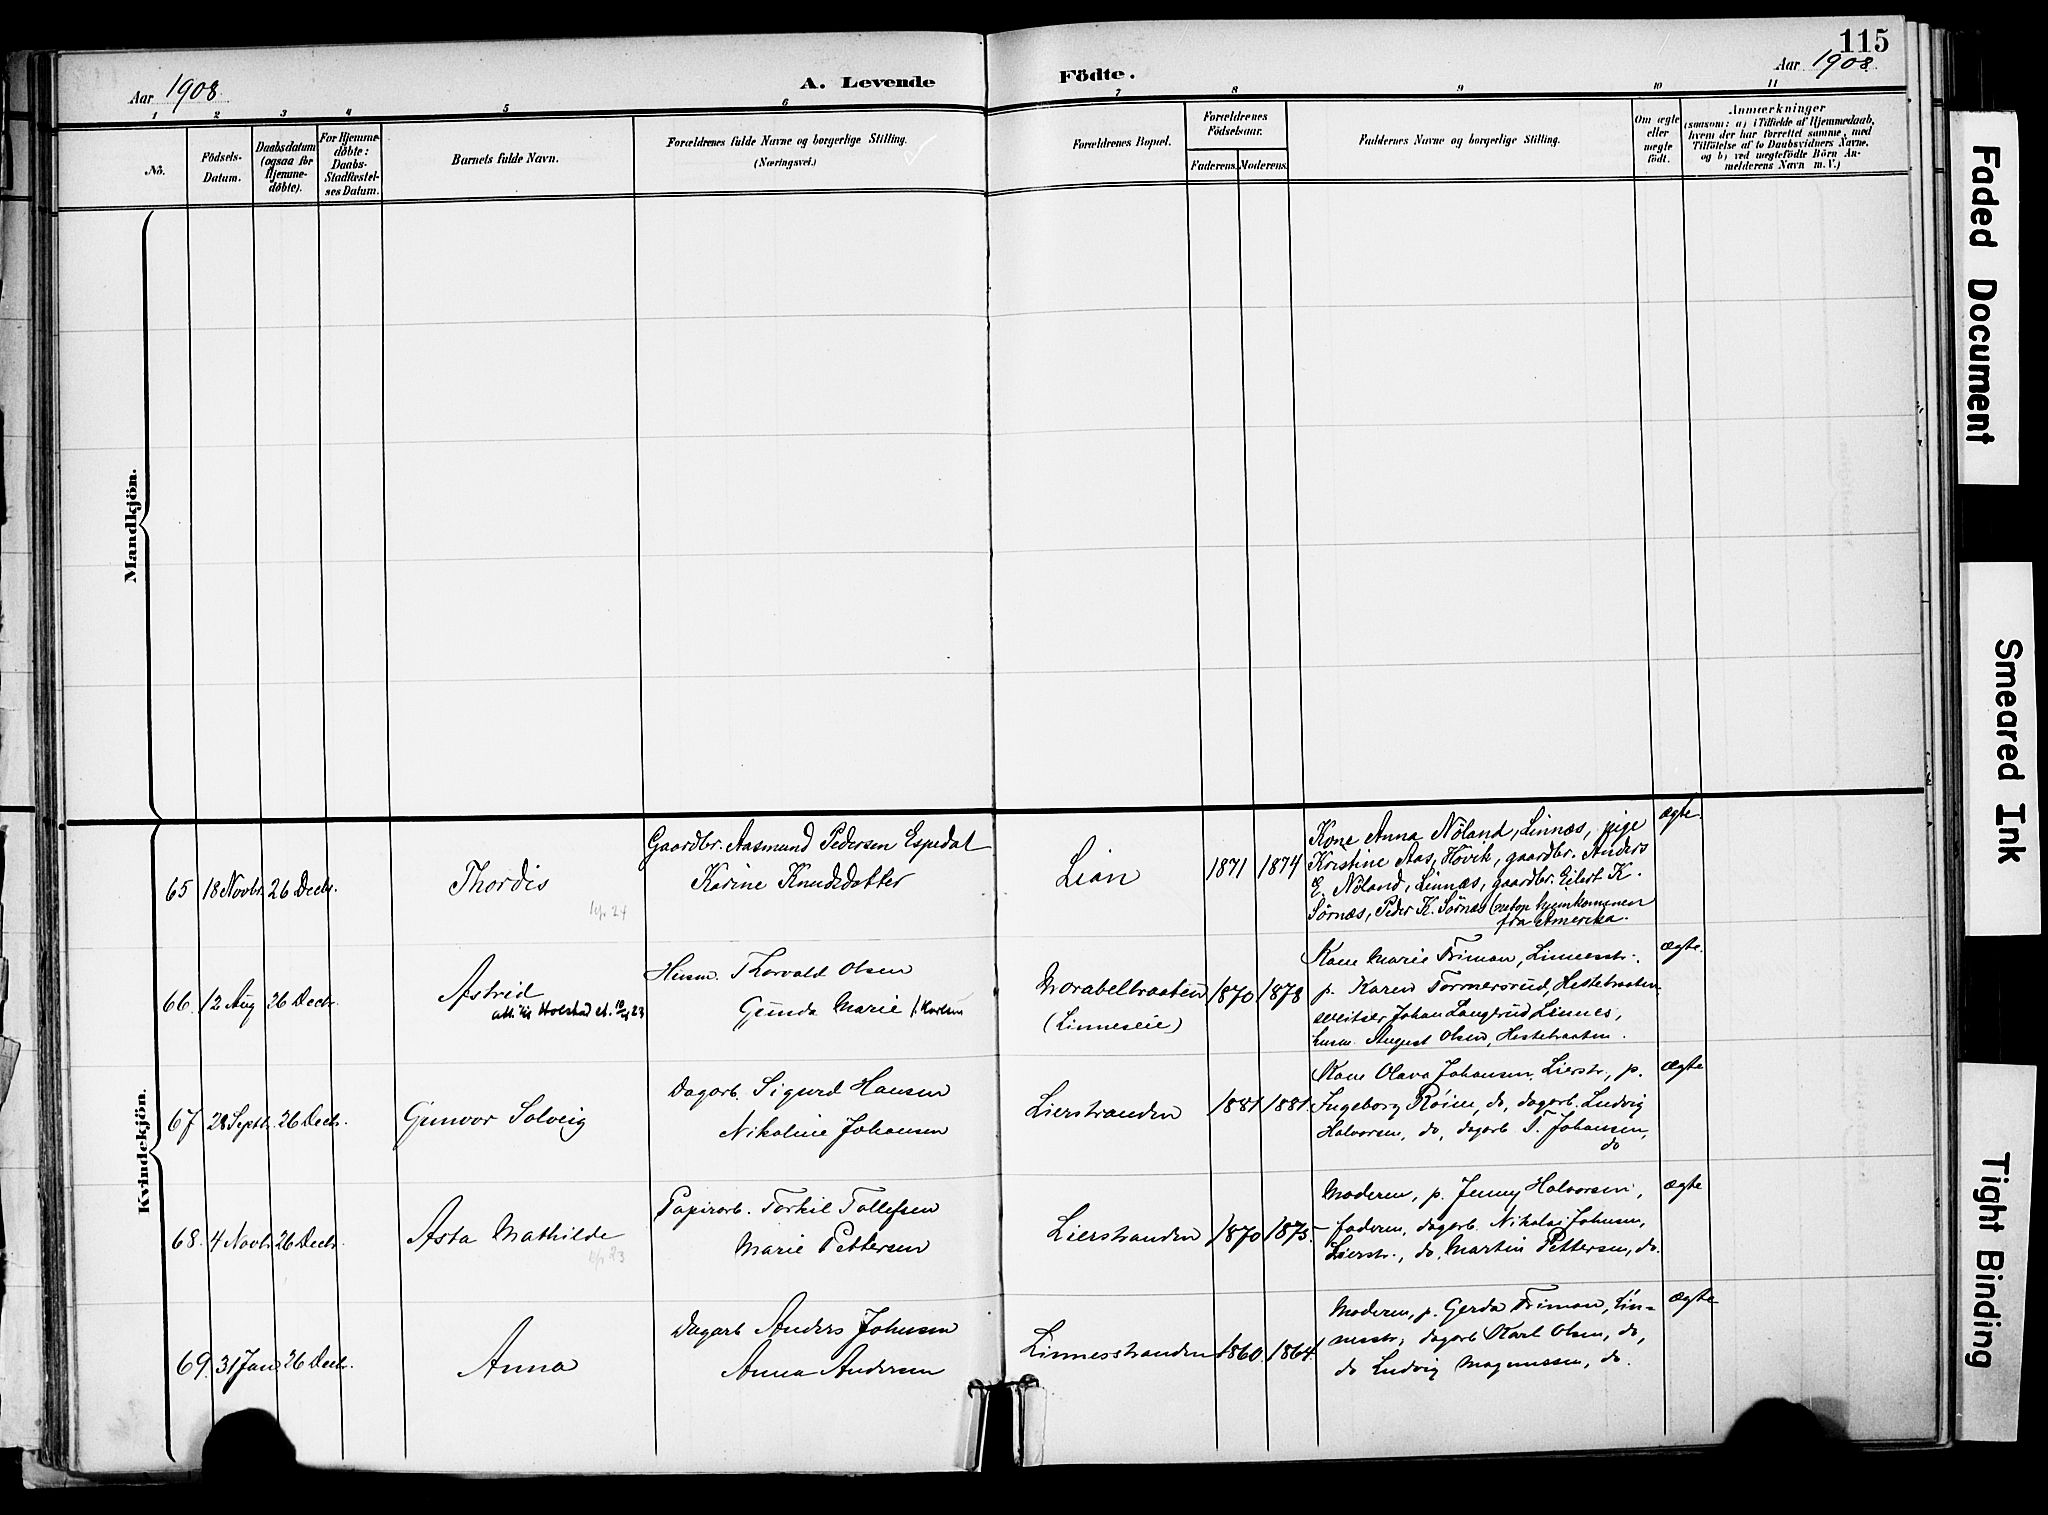 115
Aar 1908.
A. Levende Födte.
Aar 1908.
1 2 3 4 5 6 7 8 9 10 11
No.
Födsels-
Datum.
Daabsdatum
(ogsaa for
Hjemme-
døbte).
For Hjemme-
døbte:
Daabs-
Stadfæstel-
ses Datum.
Barnets fulde Navn.
Forældrenes fulde Navne og borgerlige Stilling.
(Næringsvei.)
Forældrenes Bopæl.
Forældrenes
Fødselsaar.
Faderens. Moderens.
Faddernes Navne og borgerlige Stilling.
Om ægte
eller
uægte
født.
Anmærkninger
(saasom: a) i Tilfælde af Hjemmedaab,
hvem der har forrettet samme, med
Tilføielse af to Daabsvidners Navne,
og b) ved uægtefödte Börn An-
melderens Navn m. V.)
Mandkjön.
Kvindekjön.
65 18 Novbr. 26 Decbr.
Thordis
Gaardbr. Aasmund Pedersen Espedal
Karine Knudsdatter
Lian
1871 1874
Kone Anna Nöland, Linnæs, pige
Kristine Aas, Hövik, gaardbr. Anders
E. Nöland, Linnæs, gaardbr. Eilert K.
Sörnæs, Peder K. Sörnæs (netop hjemkommen
fra Amerika.
ægte.
66. 12 Aug 26 Decbr.
Astrid
Husm. Thorvald Olsen
Gunda Marie
(Linneseie)
1870 1878
Kone Marie Friman, Linnesstr.
p. Karen Tormersrud, Hestebraaten,
sveitser Johan Langerud Linnes,
husm. August Olsen, Hestebraaten.
ægte.
67 28 Septbr. 26 Decbr.
Gunvor Solveig
Dagarb. Sigurd Hansen
Nikoline Johansen
Lierstranden
1881 1881
Kone Olava Johansen, Lierstr., p.
Ingeborg Röine, do, dagarb. Ludvig
Halvorsen, do, dagarb T. Johansen,
do
ægte
68. 4 Novbr 26 Decbr.
Asta Mathilde
Papirarb. Torkil Tollefsen
Marie Pettersen
Lierstranden
1870 1875
Moderen, p. Jenny Halvorsen,
faderen, dagarb. Nikolai Johnsen,
Lierstr., do, Martin Pettersen, do.
ægte
69. 31 Jan 26 Decbr.
Anna
Dagarb Anders Johnsen
Anna Andersen
Linnesstranden
1860. 1864.
Moderen, p. Gerda Friman, Lin-
nesstr, dagarb Karl Olsen, do,
do Ludvig Magnussen, do.
ægte
Faded Document
Smeared Ink
Tight Binding